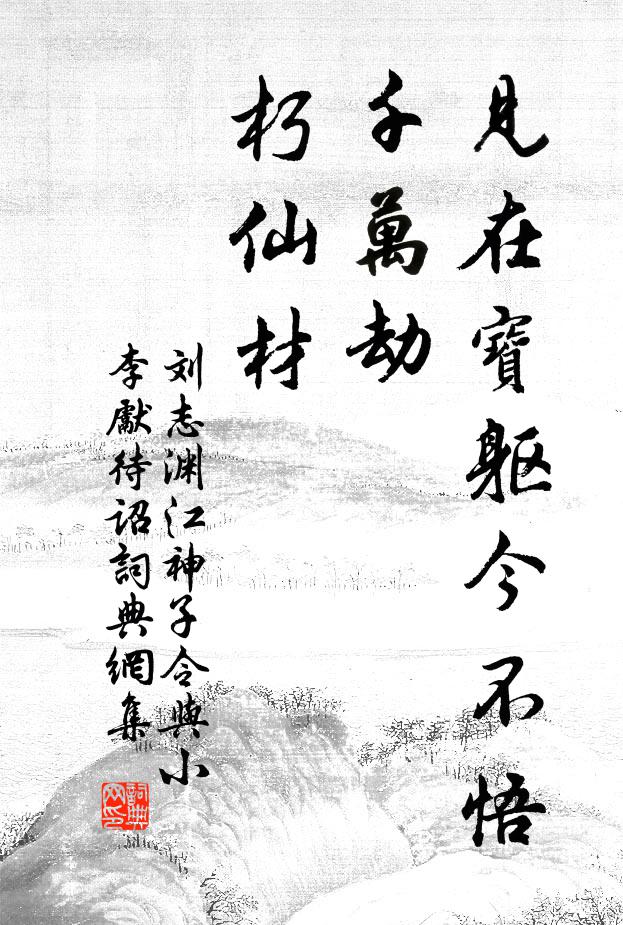 見在寶躯今不悟
千萬劫
朽仙材
刘志渊江神子令與小
李獻待詔詞典網集
詞典
网印